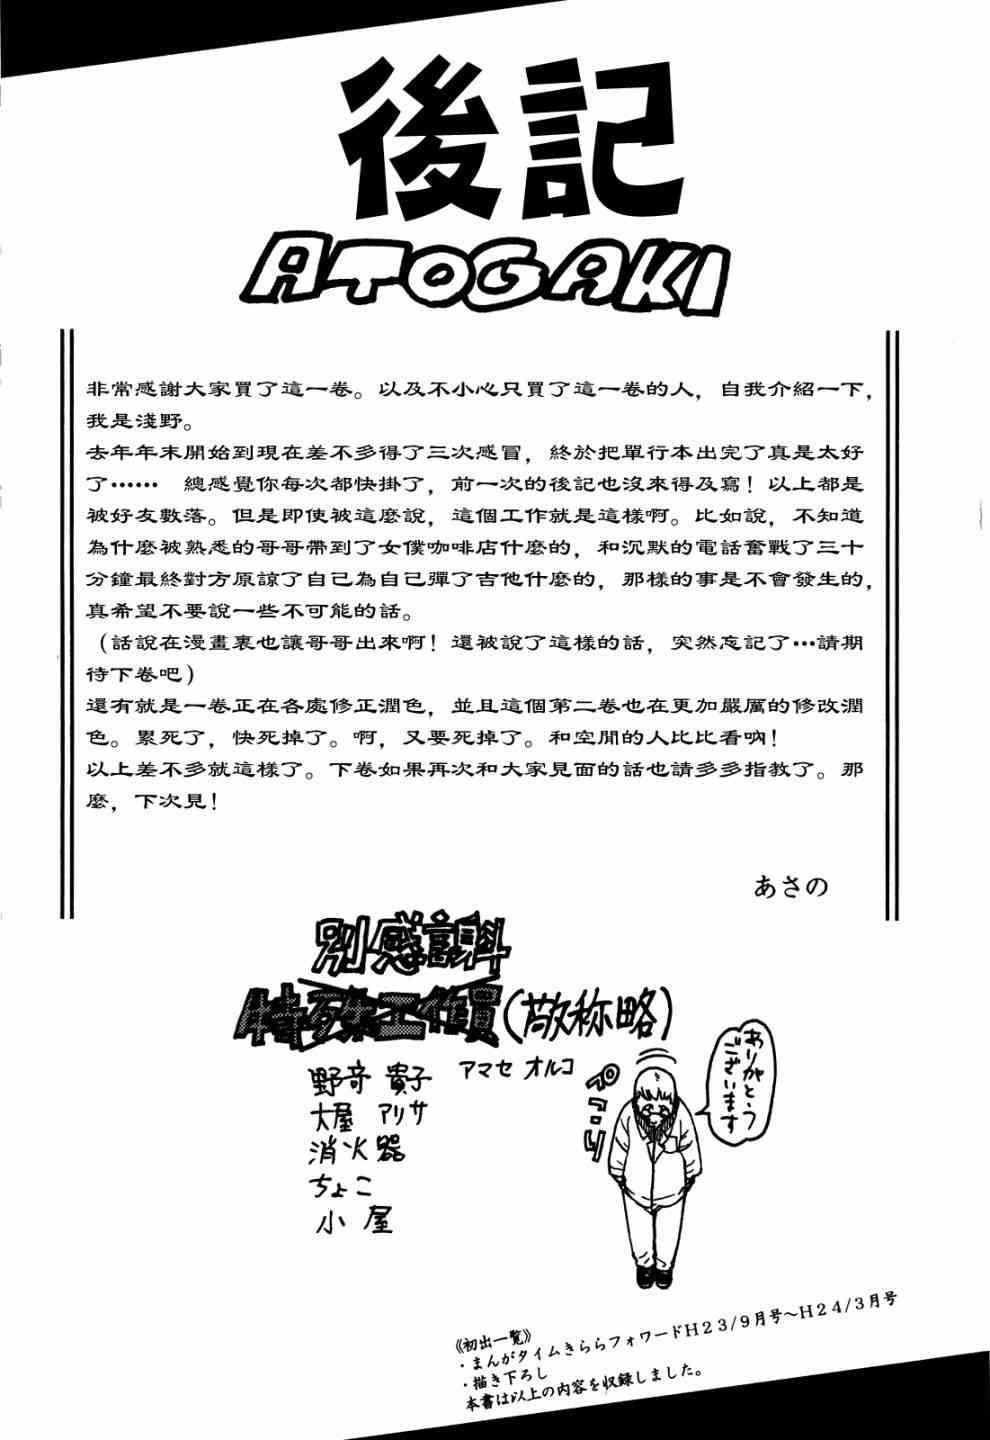 後記
ATOGAKI
非常感謝大家買了這一卷。以及不小心只買了這一卷的人，自我介紹一下，
我是淺野。
去年年末開始到現在差不多得了三次感冒，終於把單行本出完了真是太好
了⋯⋯　總感覺你每次都快掛了，前一次的後記也沒來得及寫！以上都是
被好友數落。但是即使被這麼說，這個工作就是這樣啊。比如說，不知道
為什麼被熟悉的哥哥帶到了女僕咖啡店什麼的，和沉默的電話奮戰了三十
分鐘最終對方原諒了自己為自己彈了吉他什麼的，那樣的事是不會發生的，
真希望不要說一些不可能的話。
（話說在漫畫裏也讓哥哥出來啊！還被說了這樣的話，突然忘記了⋯請期
待下卷吧）
還有就是一卷正在各處修正潤色，並且這個第二卷也在更加嚴厲的修改潤
色。累死了，快死掉了。啊，又要死掉了。和空閒的人比比看吶！
以上差不多就這樣了。下卷如果再次和大家見面的話也請多多指教了。那
麼，下次見！
あさの
別感謝料
特殊工作員(敬称略)
野奇 貴子　アマセ オルコ
大屋 アリサ
消火器
ちょこ
小屋
ぺこり
ありがとう
ございます
《初出一覧》
・まんがタイムきららフォワードH２３/９月号～H２４/３月号
・描き下ろし
本書は以上の内容を収録しました。